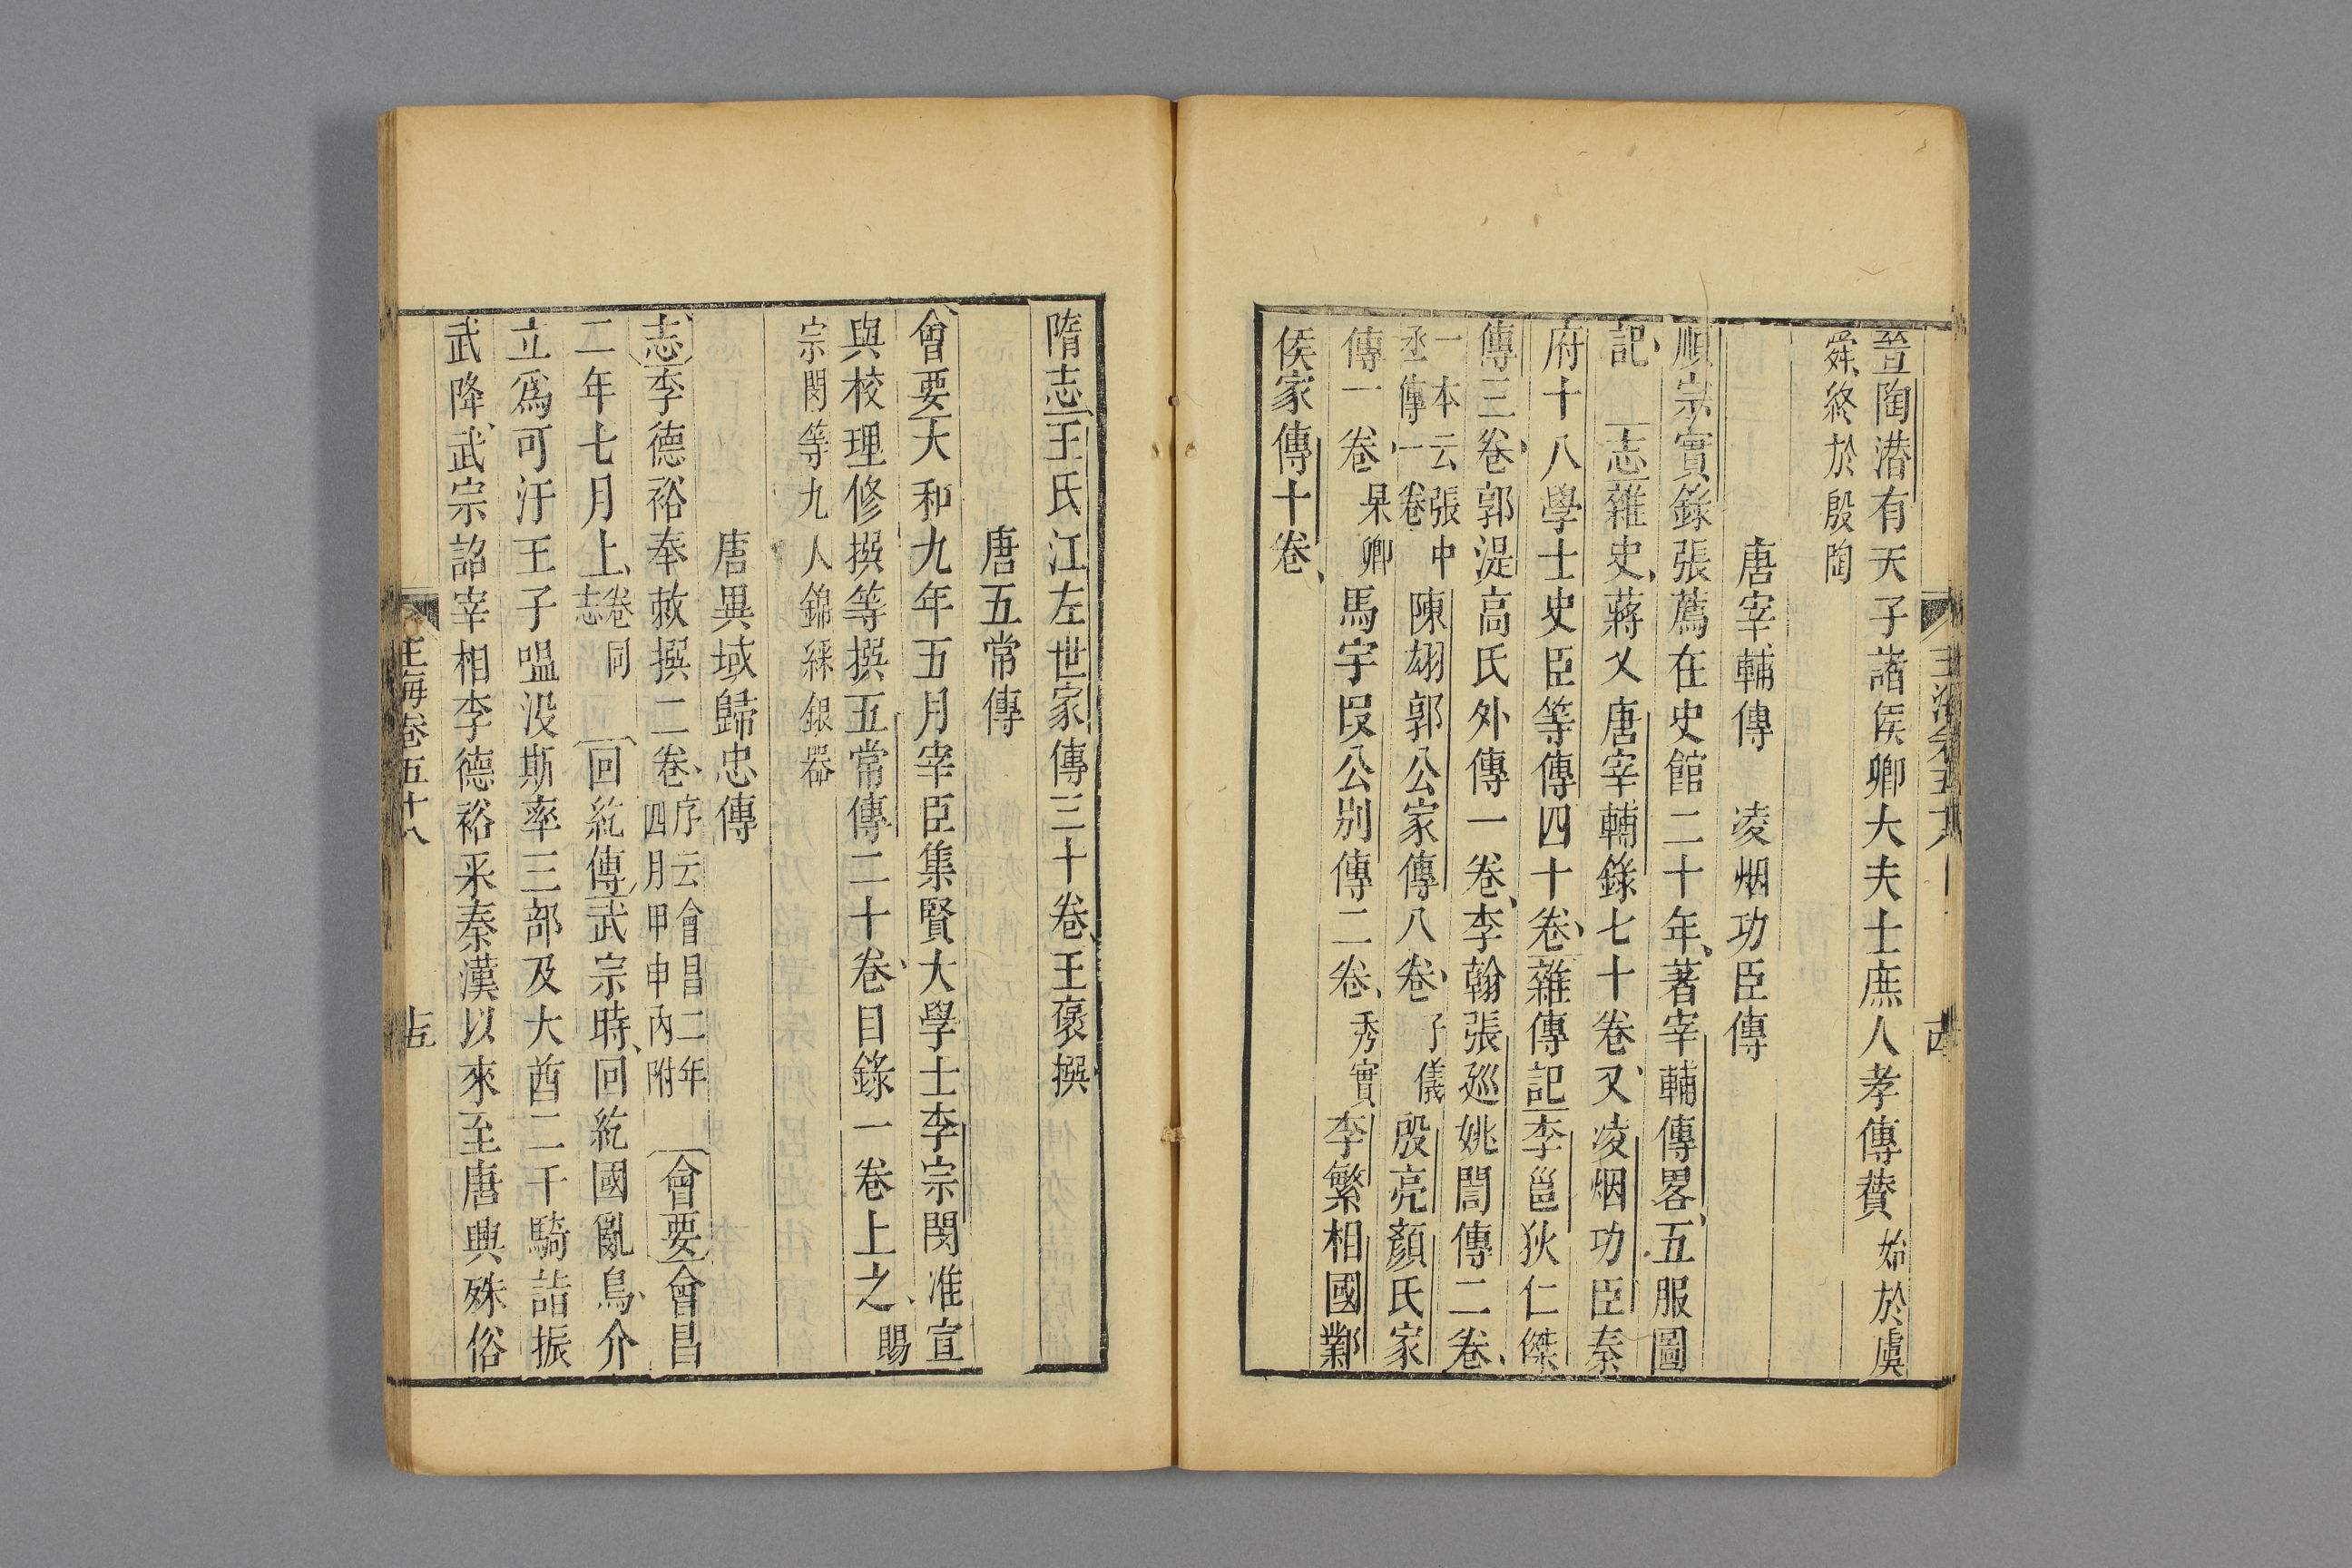 晉陶潜有天子諸侯卿大夫士庶人孝傳賛始於虞
舜終於殷陶
唐宰輔傳　凌烟功臣傳
順宗實錄張薦在史館二十年著宰輔傳畧五服圖
記　志雜史蔣乂唐宰輔錄七十卷又凌烟功臣秦
府十八學士史臣等傳四十卷雜傳記李邕狄仁傑
傳三卷郭湜高氏外傳一卷李翰張巡姚誾傳二卷
一本云張中
丞傳一卷
陳翃郭公家傳八卷子儀殷亮顏氏家
傳一卷杲卿馬宇段公別傳二卷秀實李繁相國鄴
侯家傳十卷
玉海卷五十八
古
隋志王氏江左世家傳三十卷王褒撰
唐五常傳
會要大和九年五月宰臣集賢大學士李宗閔准宣
與校理修撰等撰五常傳二十卷目錄一卷上之賜
宗閔等九人錦綵銀器
唐異域歸忠傳
志李德裕奉敕撰二卷
序云會昌二年
四月甲申內附
會要會昌
二年七月上
卷同
志
回紇傳武宗時回紇國亂烏介
立爲可汗王子嗢没斯率三部及大酋二千騎詣振
武降武宗詔宰相李德裕采秦漢以來至唐興殊俗
玉海卷五十八
十五